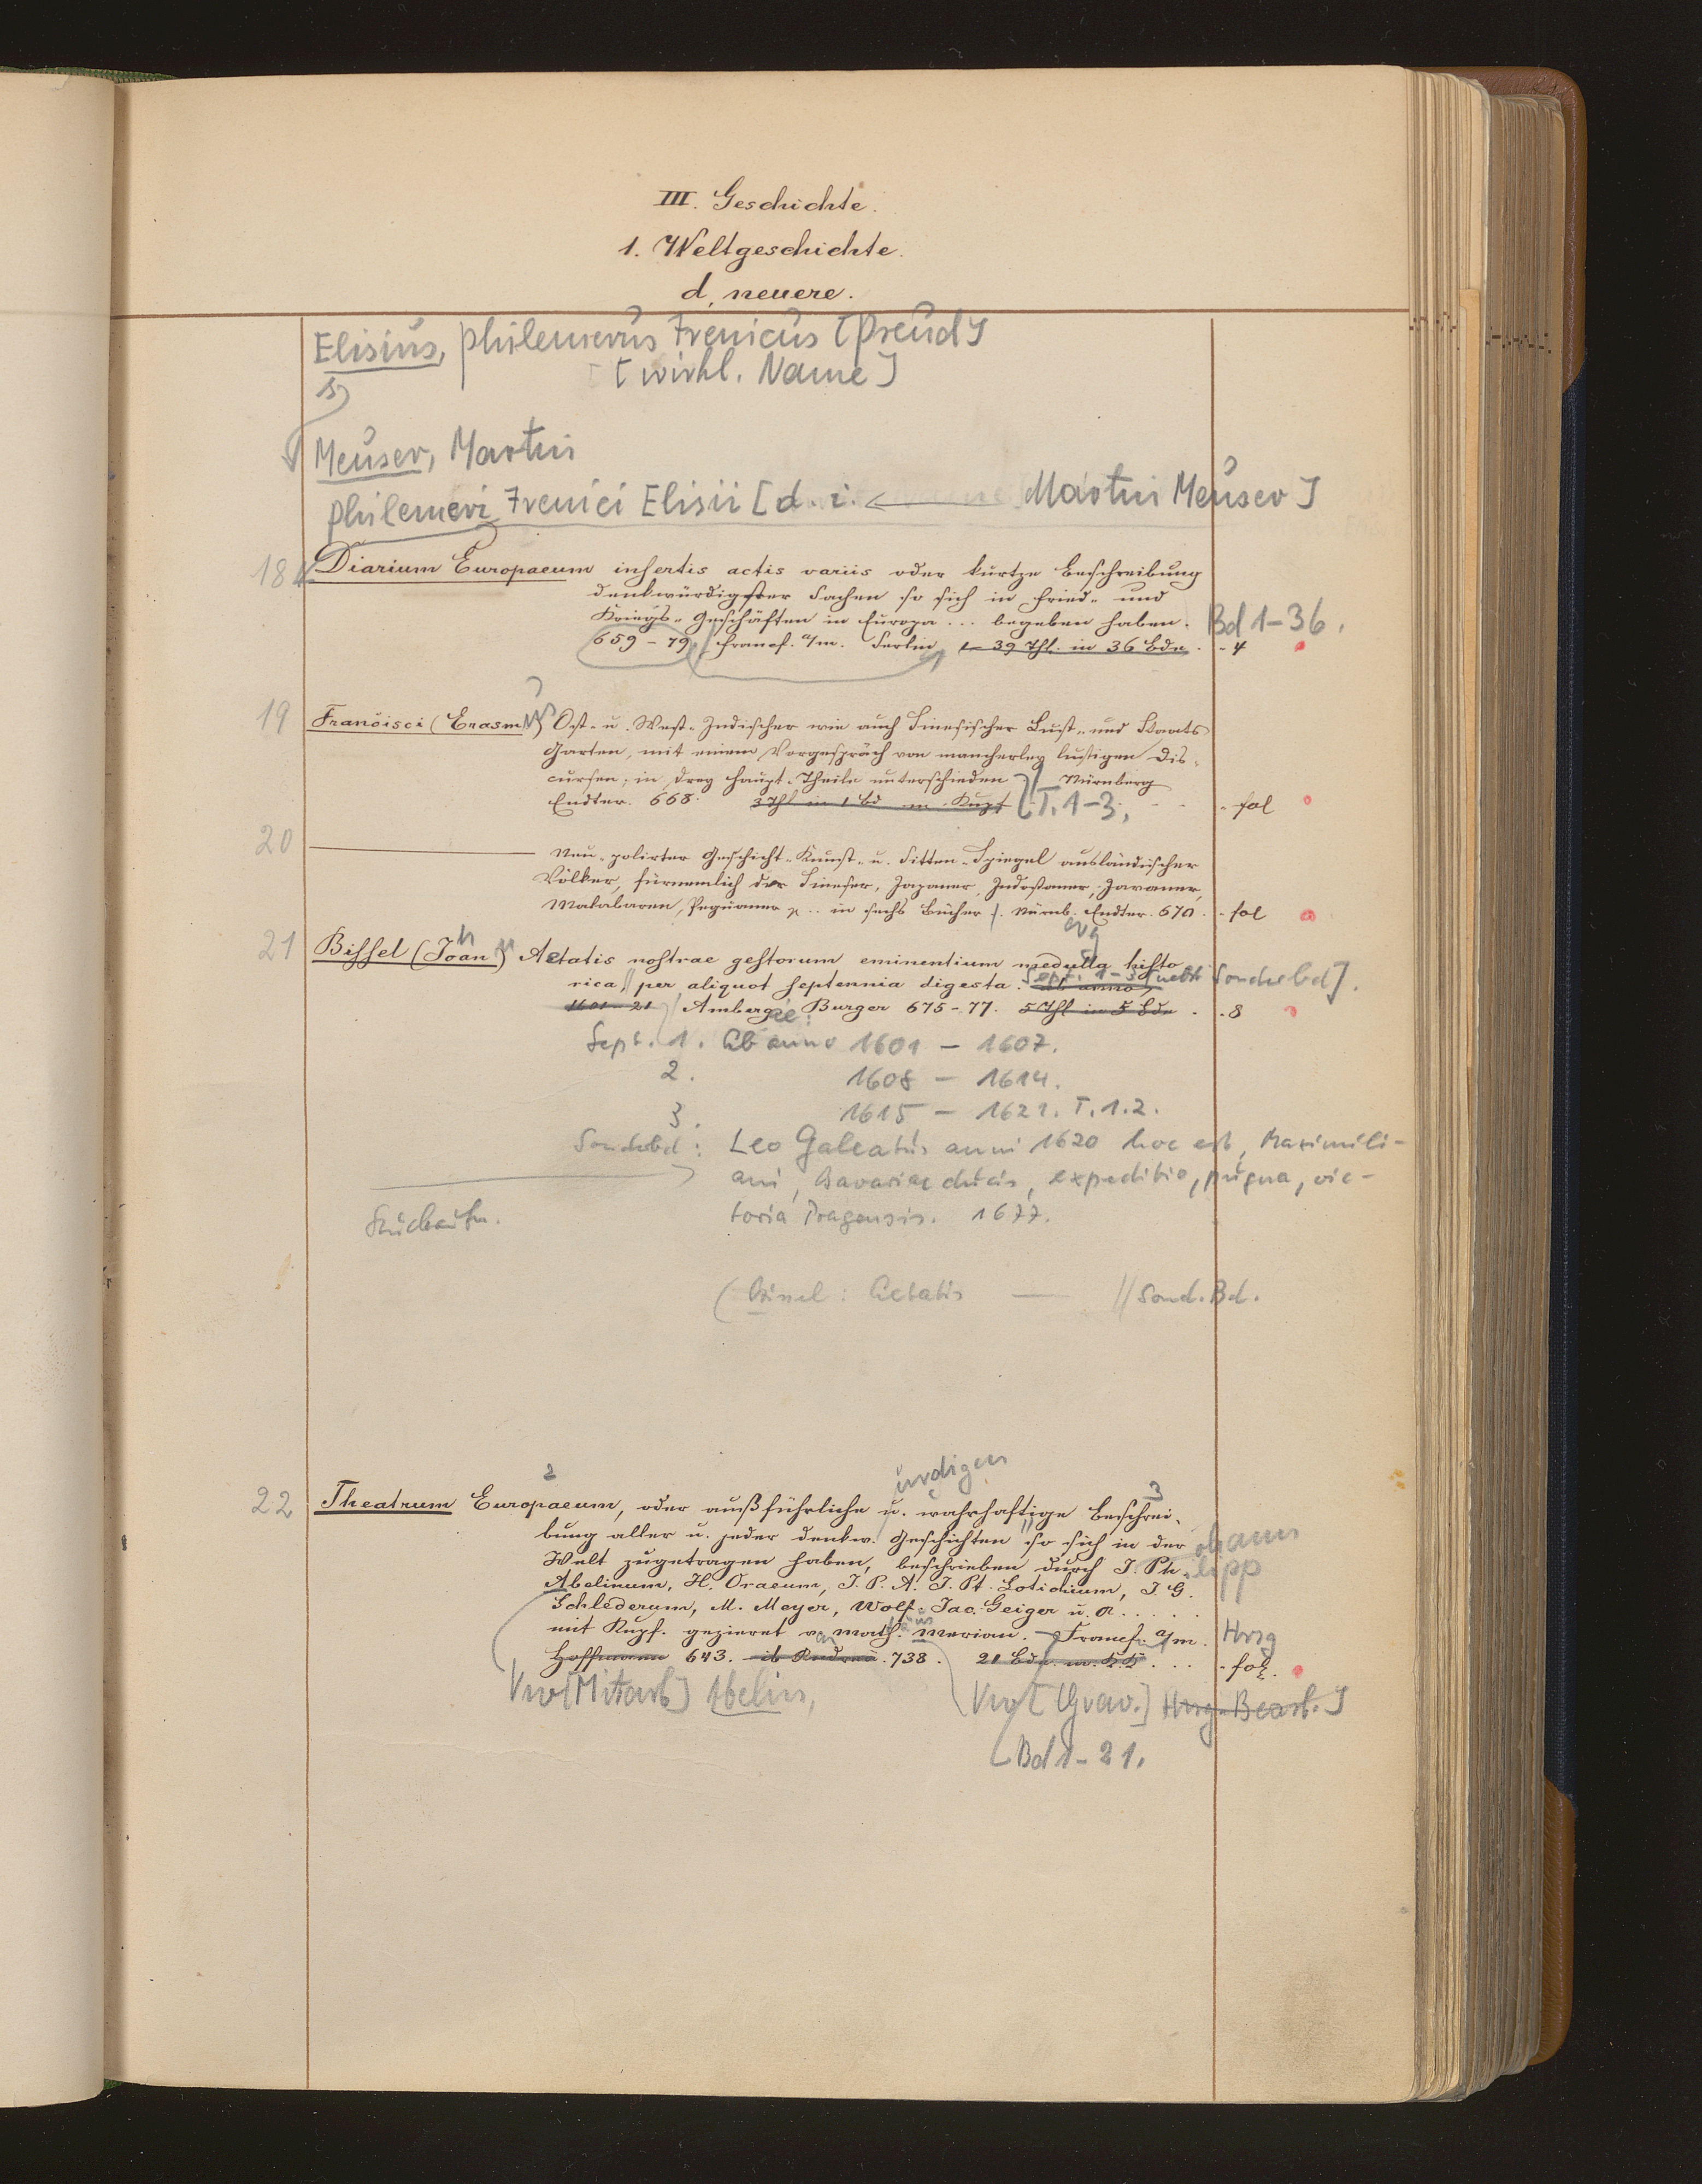 III. Geschichte.
1. Weltgeschichte.
d. neuere.
Elisius, Philemerus Irenicus [Pseud]
[wirkl. Name]
s
Meuser, Martin
Philemeri Irenici Elisii [d. i. Martin Meuser]
18 Diarium Europaeum insertis actis variis oder kurtze Beschreibung
denkwürdigster Sachen so sich in Fried- und
Kriegs-Geschäften in Europa ... begeben haben. Bd 1-36.
659-79 Francf. a/m. Serlin 1-39 Thl. in 36 Bdn. - 4
19 Francisci (Erasm) Ost- u. West-Indischer wie auch Sinesischer Lust- und Staats
Garten, mit einem Vorgespräch von mancherley lustigen Dis-
cursen; in drey Haupt-Theile unterschieden Nürnberg
Endter. 668. 3 Thl in 1 Bd m. Kupf [T. 1-3. - fol
20 ——— Neu-polirter Geschicht-Kunst- u. Sitten-Spiegel ausländischer
Völker, fürnemlich der Sineser, Japaner, Indostaner, Javaner,
Malabaren, Peguaner .. in sechs Bücher. Nürnb. Endter. 670. - fol
21 Bissel (Joan) Aetatis nostrae gestorum eminentium medulla histo
rica, per aliquot septennia digesta. ab anno Sept. 1-3 [nebst Sonderbd].
1601-21 Ambergae: Burger 675-77. 5 Thl in 5 Bdn - 8
Sept. 1. Ab anno 1601 - 1607.
2. 1608 - 1614.
3. 1615 - 1621. T. 1.2.
Sonderbd: Leo Galeatus anni 1620 hoc est, Maximili-
ani, Bavariae ducis, expeditio, pugna, vic-
toria Pragensis. 1677.
Stückaufn.
(Bissel: Aetatis — // Sond. Bd.
2 ürdigen 3
22 Theatrum Europaeum, oder außführliche u. wahrhaftige Beschrei-
bung aller u. jeder denkw. Geschichten so sich in der
Welt zugetragen haben, beschrieben durch J. Ph. ohann ilipp
Abelinum, H. Oraeum, J. P. A. J. Pt. Lotichium, J. G.
Schlederum, M. Meyer, Wolf. Jac. Geiger u. A. . . . .
mit Kupf. gezieret v. Math. Merian. - Francf. a/m. Hrsg
Hoffmann 643. - ib 738. 21 Bde. m. KK . . . - fol.
Vw [Mitarb] Abelin, Vw [Grav.] Hrsg. Bearb.]
Bd 1-21.